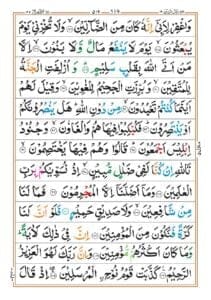 وَاغْفِرْ لِاَبِیْۤ اِنَّهٗ كَانَ مِنَ الضَّآلِّیْنَ ۙ وَلَا تُخْزِنِیْ یَوْمَ
یُبْعَثُوْنَ ۙ یَوْمَ لَا یَنْفَعُ مَالٌ وَّلَا بَنُوْنَ ۙ اِلَّا
مَنْ اَتَی اللّٰهَ بِقَلْبٍ سَلِیْمٍ ؕ وَاُزْلِفَتِ الْجَنَّةُ
لِلْمُتَّقِیْنَ ۙ وَبُرِّزَتِ الْجَحِیْمُ لِلْغٰوِیْنَ ۙ وَقِیْلَ لَهُمْ
اَیْنَمَا كُنْتُمْ تَعْبُدُوْنَ ۙ مِنْ دُوْنِ اللّٰهِ ؕ هَلْ یَنْصُرُوْنَكُمْ
اَوْ یَنْتَصِرُوْنَ ؕ فَكُبْكِبُوْا فِیْهَا هُمْ وَالْغَاوٗنَ ۙ وَجُنُوْدُ
اِبْلِیْسَ اَجْمَعُوْنَ ؕ قَالُوْا وَهُمْ فِیْهَا یَخْتَصِمُوْنَ ۙ
تَاللّٰهِ اِنْ كُنَّا لَفِیْ ضَلٰلٍ مُّبِیْنٍ ۙ اِذْ نُسَوِّیْكُمْ بِرَبِّ
الْعٰلَمِیْنَ وَمَاۤ اَضَلَّنَاۤ اِلَّا الْمُجْرِمُوْنَ فَمَا لَنَا
مِنْ شَافِعِیْنَ ۙ وَلَا صَدِیْقٍ حَمِیْمٍ فَلَوْ اَنَّ لَنَا
كَرَّةً فَنَكُوْنَ مِنَ الْمُؤْمِنِیْنَ اِنَّ فِیْ ذٰلِكَ لَاٰیَةً
وَمَا كَانَ اَكْثَرُهُمْ مُّؤْمِنِیْنَ وَاِنَّ رَبَّكَ لَهُوَ الْعَزِیْزُ
الرَّحِیْمُ كَذَّبَتْ قَوْمُ نُوْحِ اِ۟لْمُرْسَلِیْنَ اِذْ قَالَ